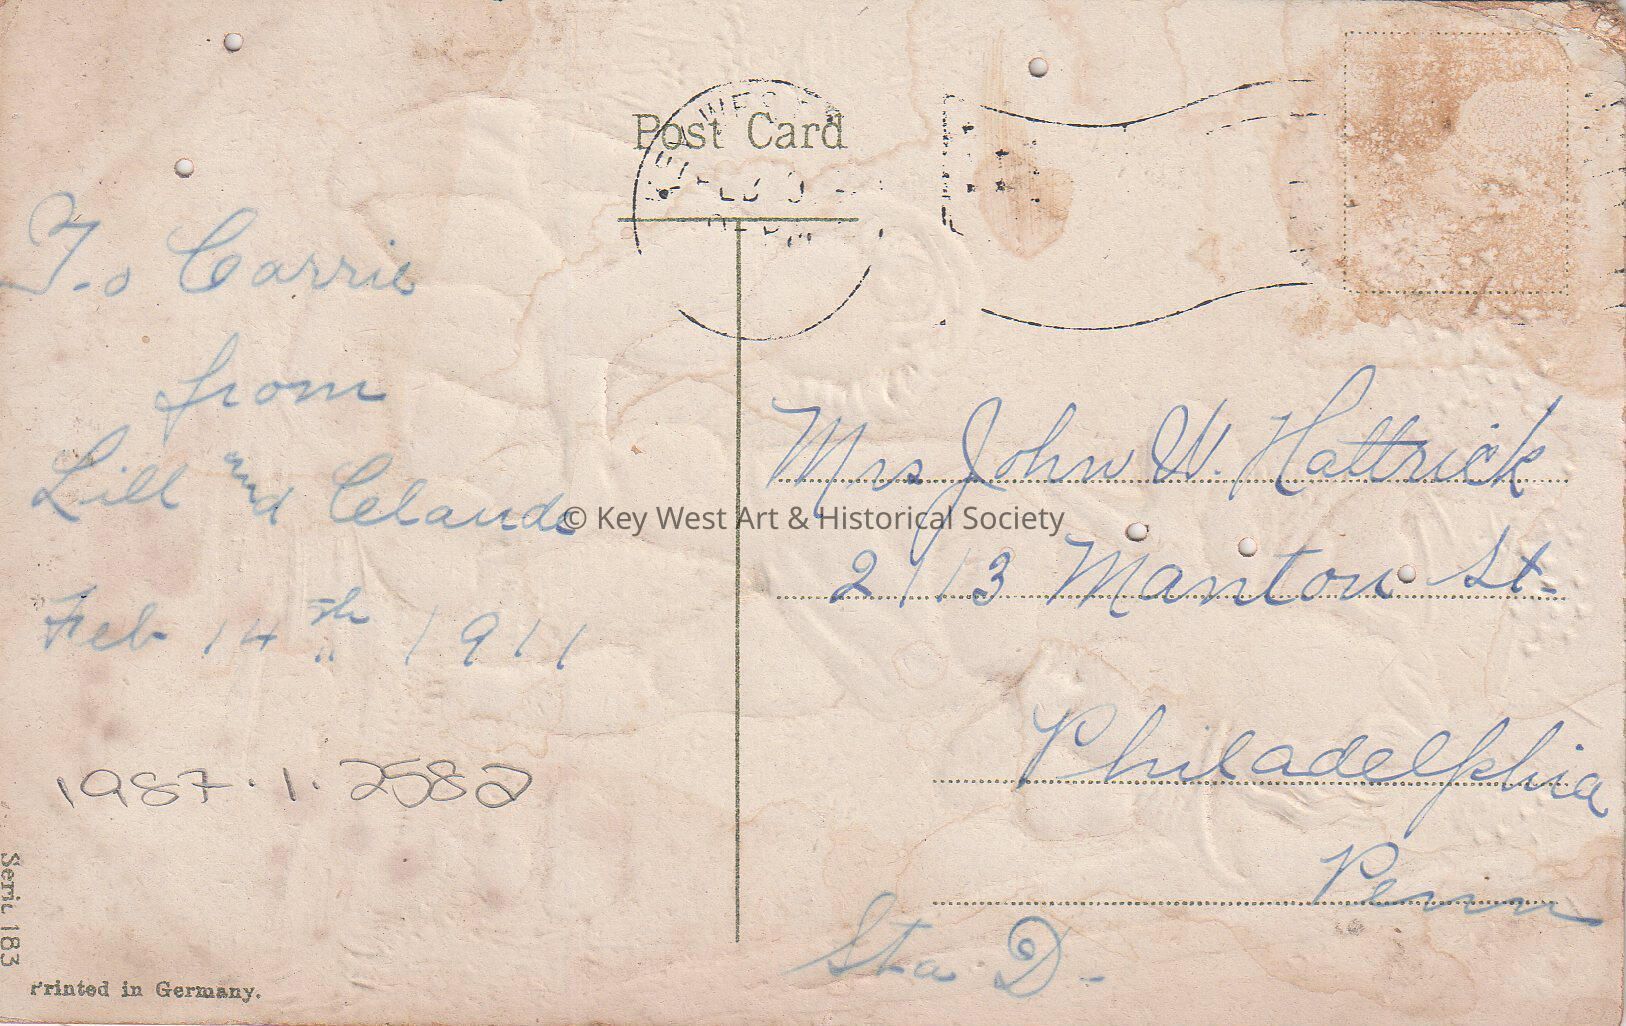 Post Card
KEY WEST
To Carrie
from
Lill and Claude
Feb 14th 1911
1987.1.2582
Serie 183
Printed in Germany.
© Key West Art & Historical Society
Mrs John W. Hattrick
2113 Manton St.
Philadelphia
Penn
Sta. D-